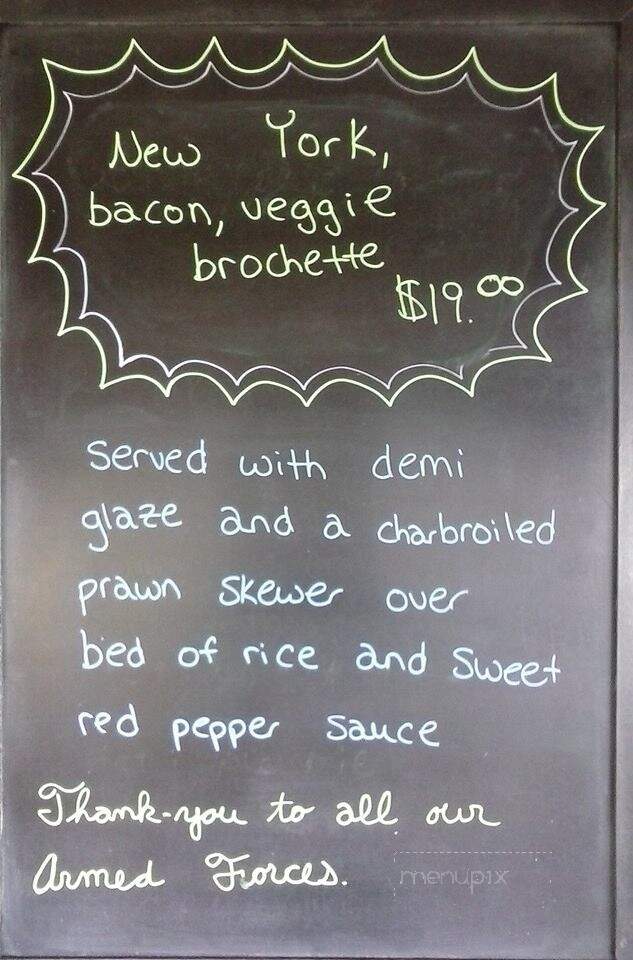 New York,
bacon, veggie
brochette
$19.00
Served with demi
glaze and a charbroiled
prawn skewer over
bed of rice and sweet
red pepper sauce
Thank-you to all our
Armed Forces.
menupix